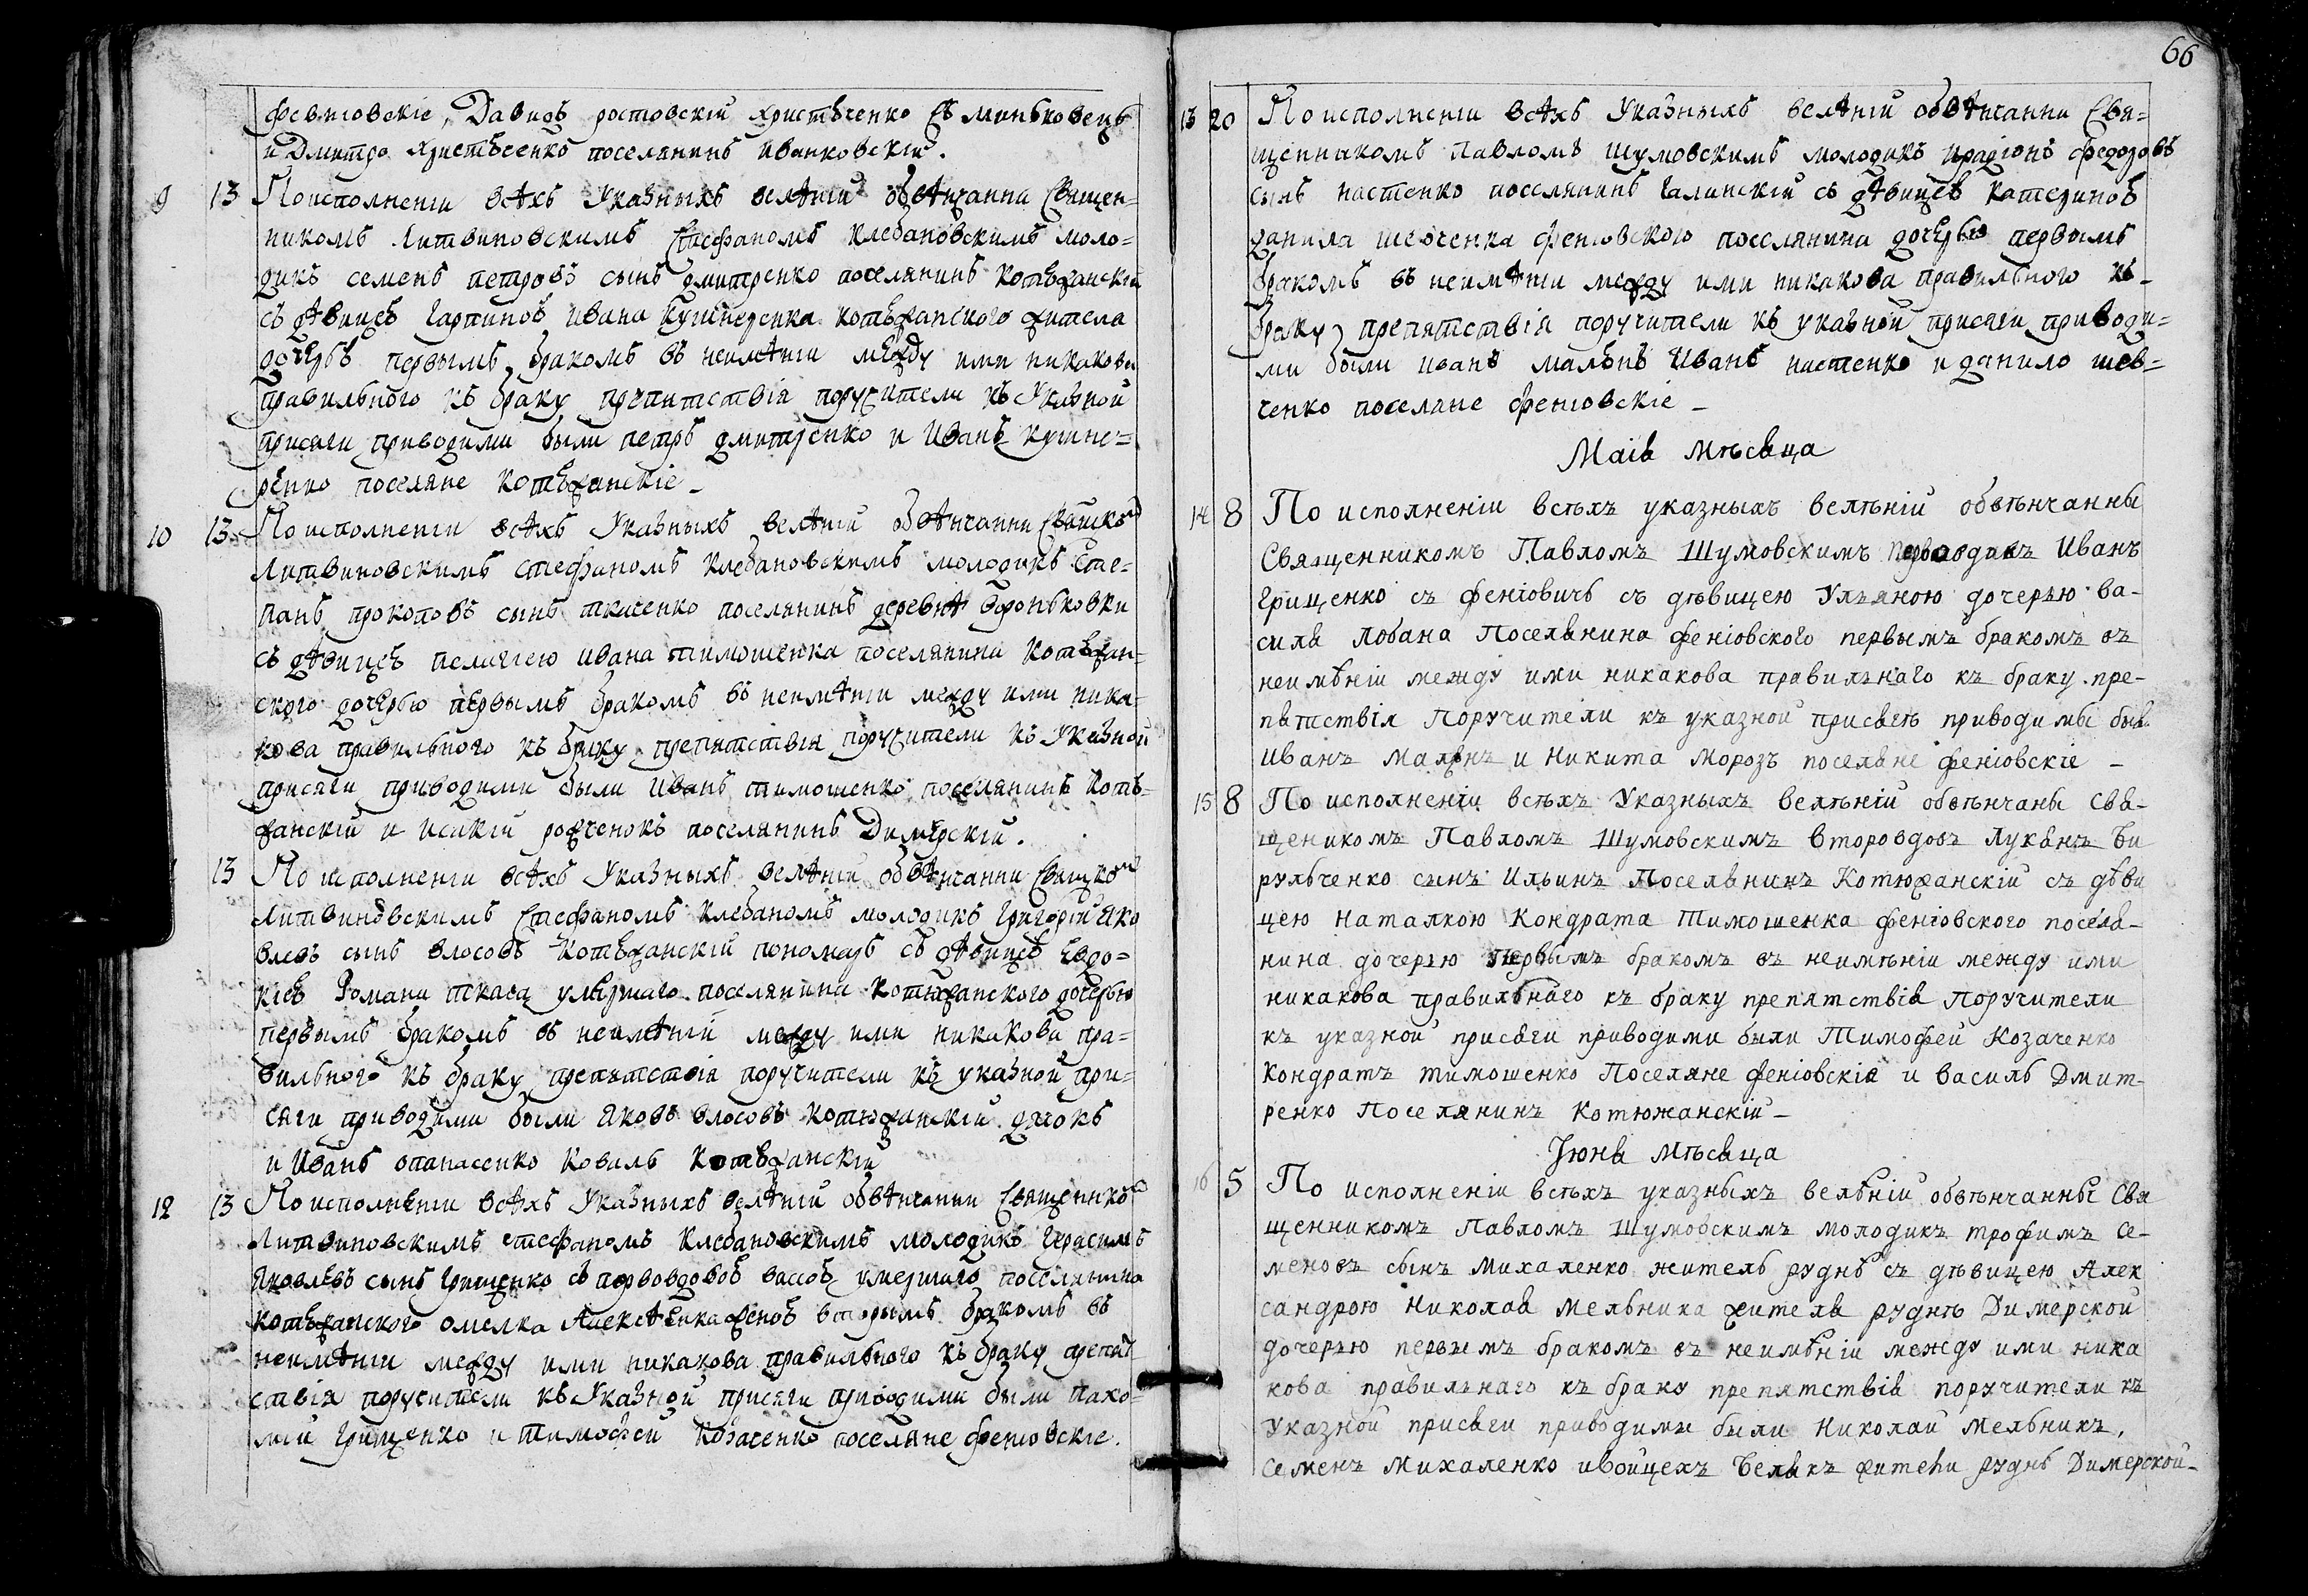 феніовскіе, Давидъ ростовскій христѣченко съ миньковецъ
и Дмитро христѣченко поселянинъ иванковскій.
9 13 По исполненіи всѣхъ Указныхъ велѣній обвѣнчанни Священ=
никомъ Литвиновскимъ Стефаномъ клебановскимъ моло=
дикъ семенъ петровъ сынъ дмитренко поселянинъ котюжанскій
съ дѣвицею Гарпиною ивана кушнеренка котюжанского жителя
дочерью первымъ бракомъ въ неимѣніи между ими никакова
правильного къ браку препятствія поручители къ Указной
присяги приводими были петръ дмитренко и Иванъ кушне=
ренко поселяне котюжанскіе_
10 13 По исполненіи всѣхъ Указныхъ велѣній обвѣнчанни Свящко^м
Литвиновскимъ стефаномъ клебановскимъ молодикъ Сте=
панъ прокоповъ сынъ ткаченко поселянинъ деревнѣ
съ дѣвицею пелагіею ивана тимошенка поселянина котюжан=
ского дочерью первымъ бракомъ въ неимѣніи между ими ника=
кова правильного къ браку препятствія поручители къ Указной
присяги приводими были Иванъ тимошенко поселянинъ котю=
жанскій и Исакій поселянинъ Димерскій.
13 По исполненіи всѣхъ Указныхъ велѣній обвѣнчанни Свящко^м
Литвиновскимъ Стефаномъ клебаномъ молодикъ Григорій Яко
влевъ сынъ власовъ котюжанскій пономарь съ дѣвицею Евдо=
кіею Романа ткача умершаго поселянина котюжанского дочерью
первымъ бракомъ въ неимѣній между ими никакова пра=
вильного къ браку препятствія поручители къ указной при=
сяги приводими были Яковъ власовъ котюжанскій дячокъ
и Иванъ опанасенко коваль котюжанскій
12 13 По исполненіи всѣхъ Указныхъ велѣній обвѣнчанни Священнко^м
Литвиновскимъ стефаномъ клебановскимъ молодикъ Герасимъ
Яковлевъ сынъ Грищенко съ первовдовою вассою умершаго поселянина
котюжанского омелка Алексѣенка женою вторымъ бракомъ въ
неимѣніи между ими никакова правильного къ браку препят
ствія поручители къ Указной присяги приводими были пахо=
мій Грищенко и Тимофей козаченко поселяне феніовскіе.
66
13 20 По исполненіи всѣхъ Указныхъ велѣній обвѣнчанни Свя=
щенникомъ Павломъ шумовскимъ молодикъ Ирадіонъ федоровъ
сынъ настенко поселянинъ галинскій съ дѣвицею катериною
данила шевченка феніовского поселянина дочерью первымъ
бракомъ въ неимѣніи между ими никакова правильного къ_
браку препятствія поручители къ указной присяги приводи=
ми были иванъ Иванъ настенко и данило шев=
ченко поселане феніовскіе_
Маія мѣсяца
14 8 По исполненіи всѣхъ указныхъ велѣній обвѣнчанны
Священникомъ Павломъ Шумовскимъ Иванъ
Грищенко съ феніовичъ съ дѣвицею Ульяною дочерью ва-
силя Лобана Поселянина феніовского первымъ бракомъ въ
неимѣніи между ими никакова правильнаго къ браку пре-
пятствія Поручители къ указной присягѣ приводимы бы
Иванъ и Никита Морозъ поселяне феніовскіе_
15 8 По исполненіи всѣхъ Указныхъ велѣній обвѣнчаны Свя-
щеникомъ Павломъ Шумовскимъ второвдовъ Лукянъ Ги
рульченко сынъ Ильинъ Поселянинъ Котюжанскій съ дѣви
цею Наталкою Кондрата Тимошенка феніовского посела-
нина дочерью первымъ бракомъ въ неимѣніи между ими
никакова правильнаго къ браку препятствія Поручители
къ указной присяги приводими были Тимофей Козаченко
Кондратъ тимошенко Поселяне феніовскія и василь Дмит-
ренко Поселянинъ Котюжанскій_
Іюня Мѣсяца
16 5 По исполненіи всѣхъ указныхъ велѣній обвѣнчанны Свя
щенникомъ Павломъ Шумовскимъ молодикъ трофимъ се-
меновъ сынъ Михаленко житель руднѣ съ дѣвицею Алек
сандрою Николая мельника жителя руднѣ Димерской
дочерью первымъ бракомъ въ неимѣніи между ими ника
кова правильнаго къ браку препятствія поручители къ
Указной присяги приводимы были Николай Мельникъ,
Семенъ Михаленко и войцехъ жители руднѣ Димерской_